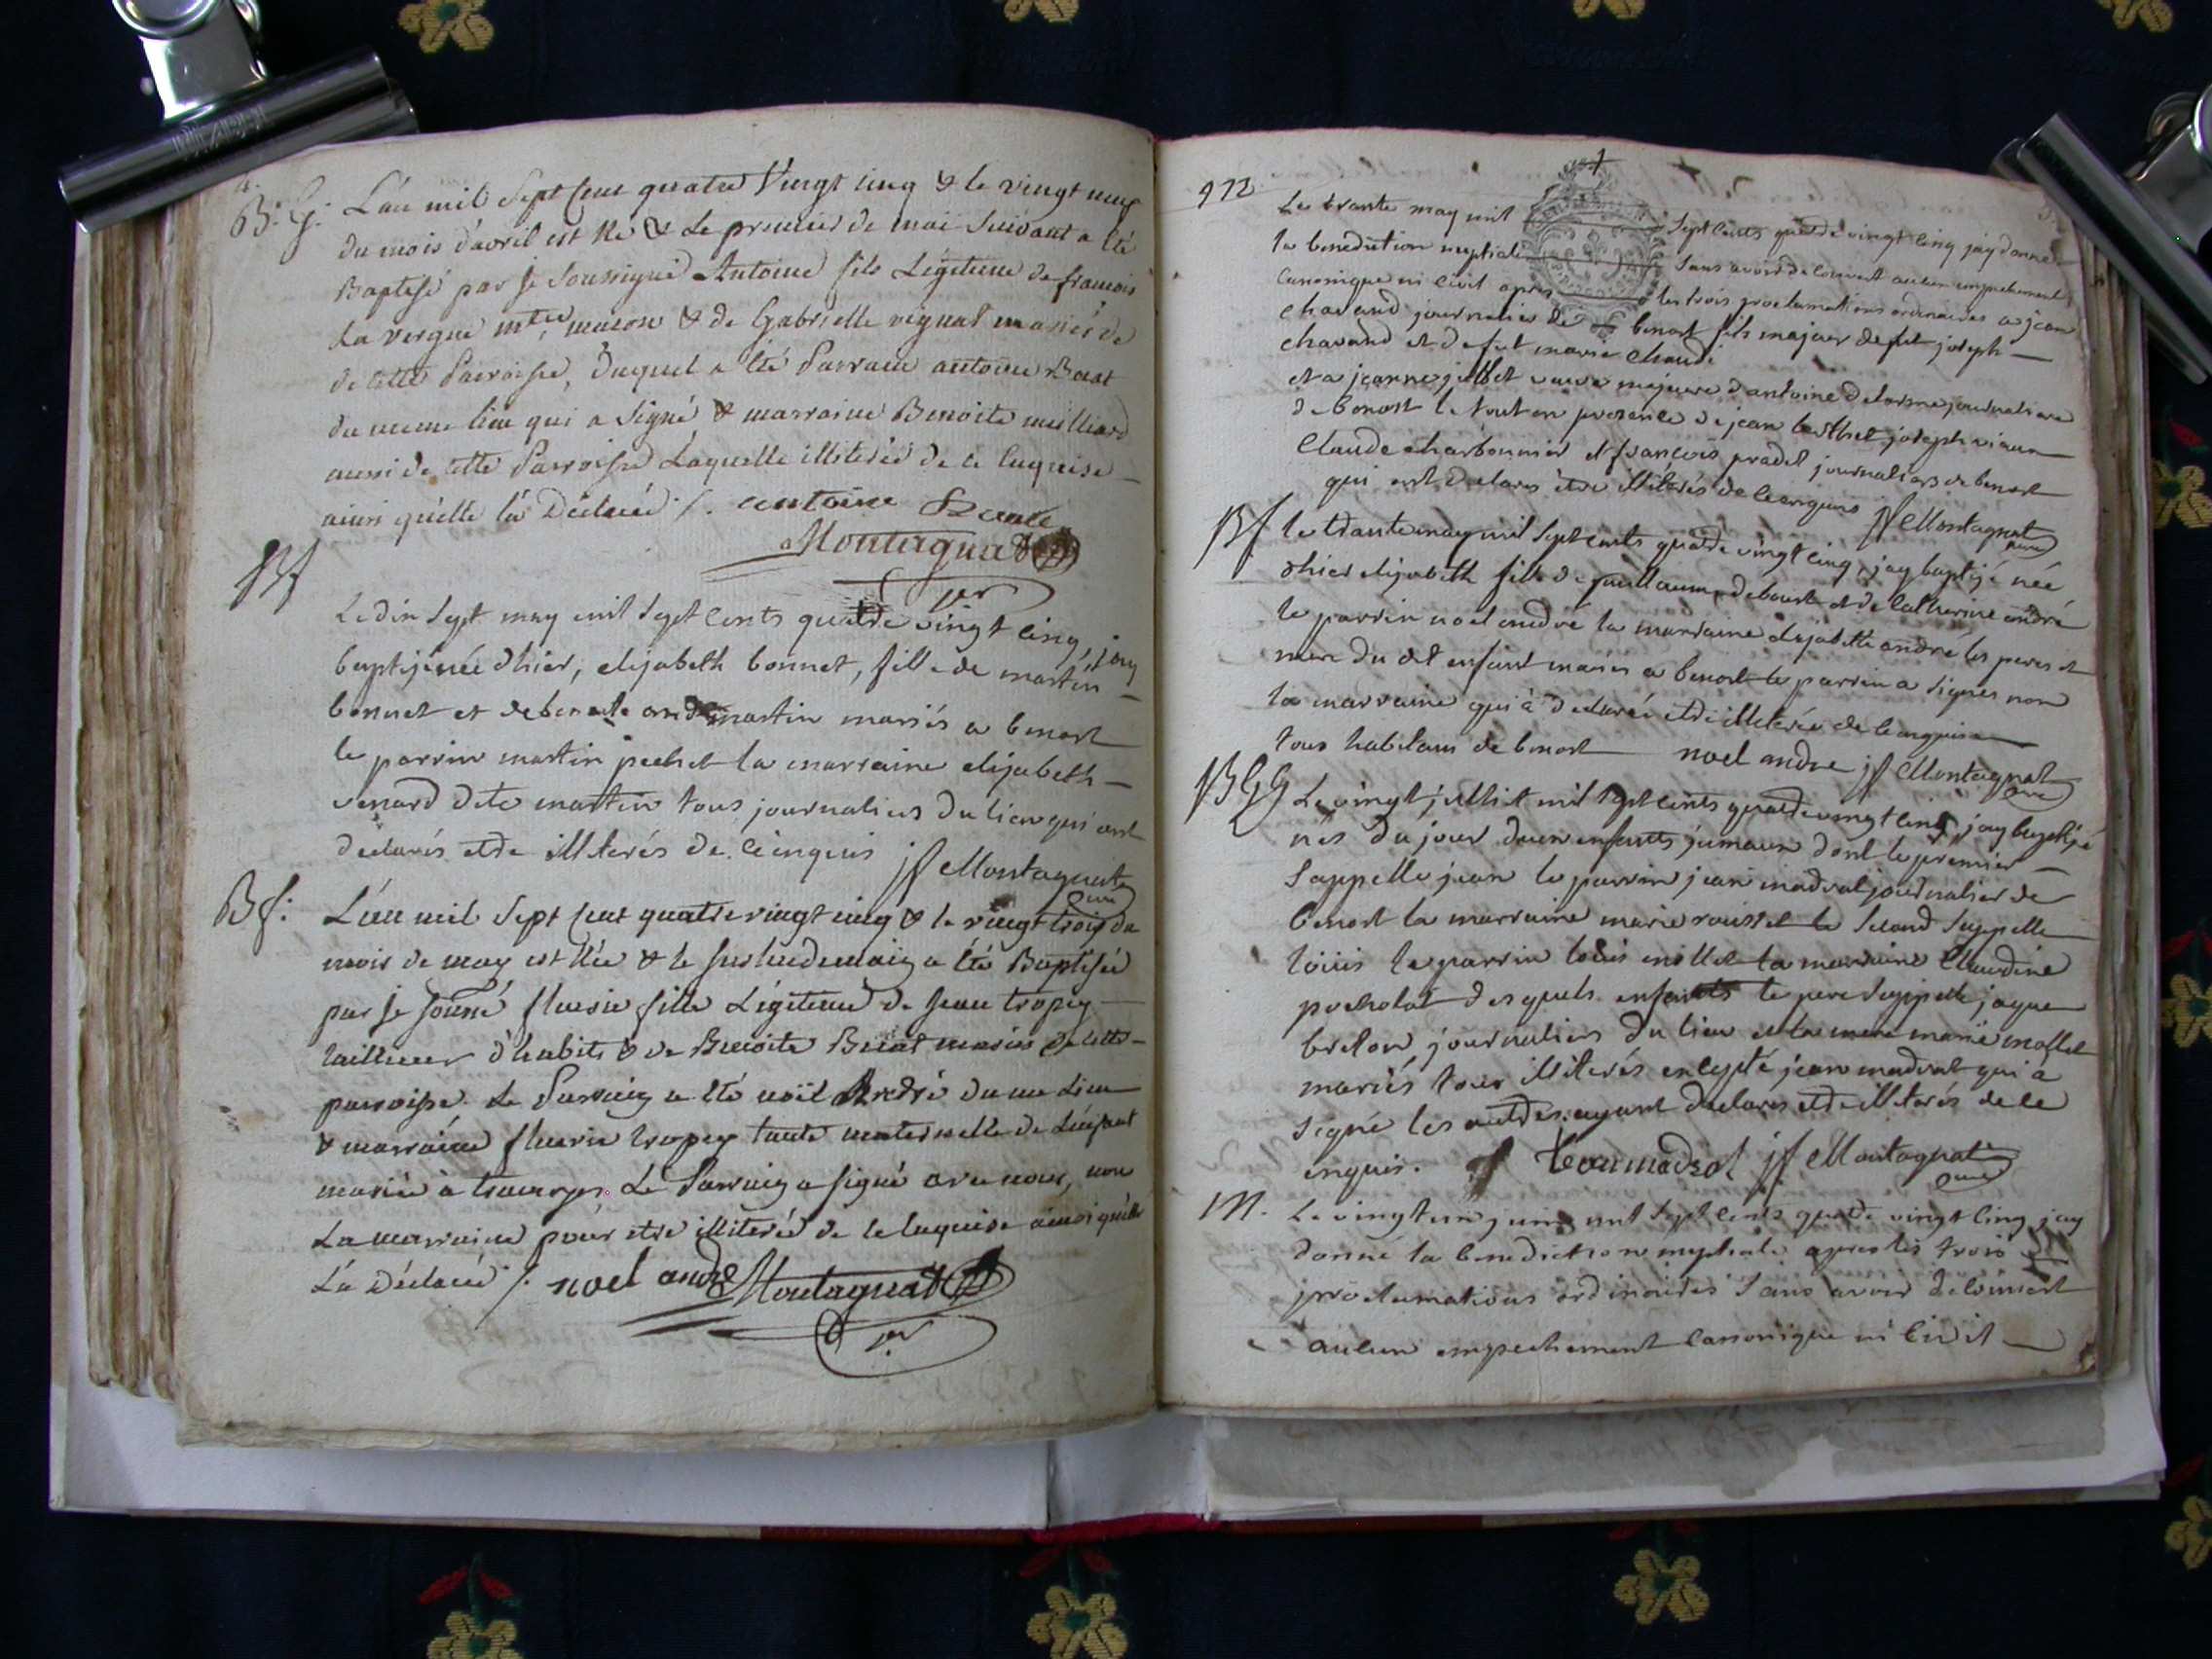 B: G: L'an mil Sept Cent quatre Vingt cinq & le vingt neuf
du mois d'avril est Né & Le premier de mai Suivant a été
Baptisé par Je Soussigné Antoine fils Légitime de francois
La vergne mtre macon & de Gabrielle vignat mariés de
de cette Parroisse, Duquel a été Parrain antoine
du meme lieu qui a Signé & marraine Benoite milliard
aussi de cette Parroisse Laquelle illiterée de ce Enquise
ainsi qu'elle l'a Déclaré /. antoine
Montagnat
Bf
Le dix Sept may mil Sept Cents quatre vingt cinq, jay
baptizé née d'hier, elizabeth bonnet, fille de martin
bonnet et de benoite martin mariés a benost
le parrin martin pechet la marraine elizabeth
venard dite martin tous journaliers du lieu qui ont
declarés etre illiterés de ce enquis jf Montagnat
curé
Bf: L'an mil Sept Cent quatre vingt cinq & le vingt trois du
mois de may est Née & le Surlendemain a été Baptisée
par Je Sousné fleurie fille Légitime de Jean tropey
tailleur d'habits & de Benoite mariés de cette
parroisse. Le Parrain a été noël André du me Lieu
& marraine fleurie tropey tante maternelle de L'enfant
mariée à Le Parrain a Signé avec nous, non
La marraine pour etre illiterée de ce Enquise ainsi qu'elle
L'a Déclaré /. noel andre Montagnat
972
Le trante may mil Sept Cents quatre vingt cinq jay donné
la benediction nuptiale Sans avoir decouvert aucun empechement
Canonique ni Civil apres les trois proclamations ordinaires a jean
chavand journalier de benost fils majeur de fut joseph
chavand et de fut marie
et a jeanne juillet veuve majeure d'antoine delorme journaliere
de benost le tout en presence de jean berthet joseph
Claude charbonnier et francois pradel journaliers de benost
qui ont declarés etre illiterés de ce enquis jf Montagnat
curé
Bf le trante may mil Sept cents quatre vingt cinq, jay baptizé née
d'hier elizabeth fille de guillaume et de Catherine andré
le parrin noel andré la marraine elizabeth andré les pere et
mere du dit enfant mariés a benost le parrin a Signé non
la marraine qui à declarée etre illiterée de ce enquise
tous habitans de benost noel andre jf Montagnat
curé
BGG Le vingt juillet mil Sept cents quatre vingt cinq jay baptizé
nés du jour deux enfants jumaux dont le premier
Sappelle jean le parrin jean madrat journalier de
benost la marraine marie roussel le Second Sappelle
loüis le parrin loüis mollet la marraine Claudine
pocholat desquels enfants le pere Sappelle jaque
breton journalier du lieu et la mere marie mollet
mariés tous illiterés excepté jean madrat qui a
signé les autres ayant declarés etre illiterés de ce
enquis. Jean madrat jf Montagnat
curé
M. Le vingt un juin mil Sept cents quatre vingt cinq jay
donné la benediction nuptiale apres les trois
proclamations ordinaires Sans avoir decouvert
aucun empechement Canonique ni Civil